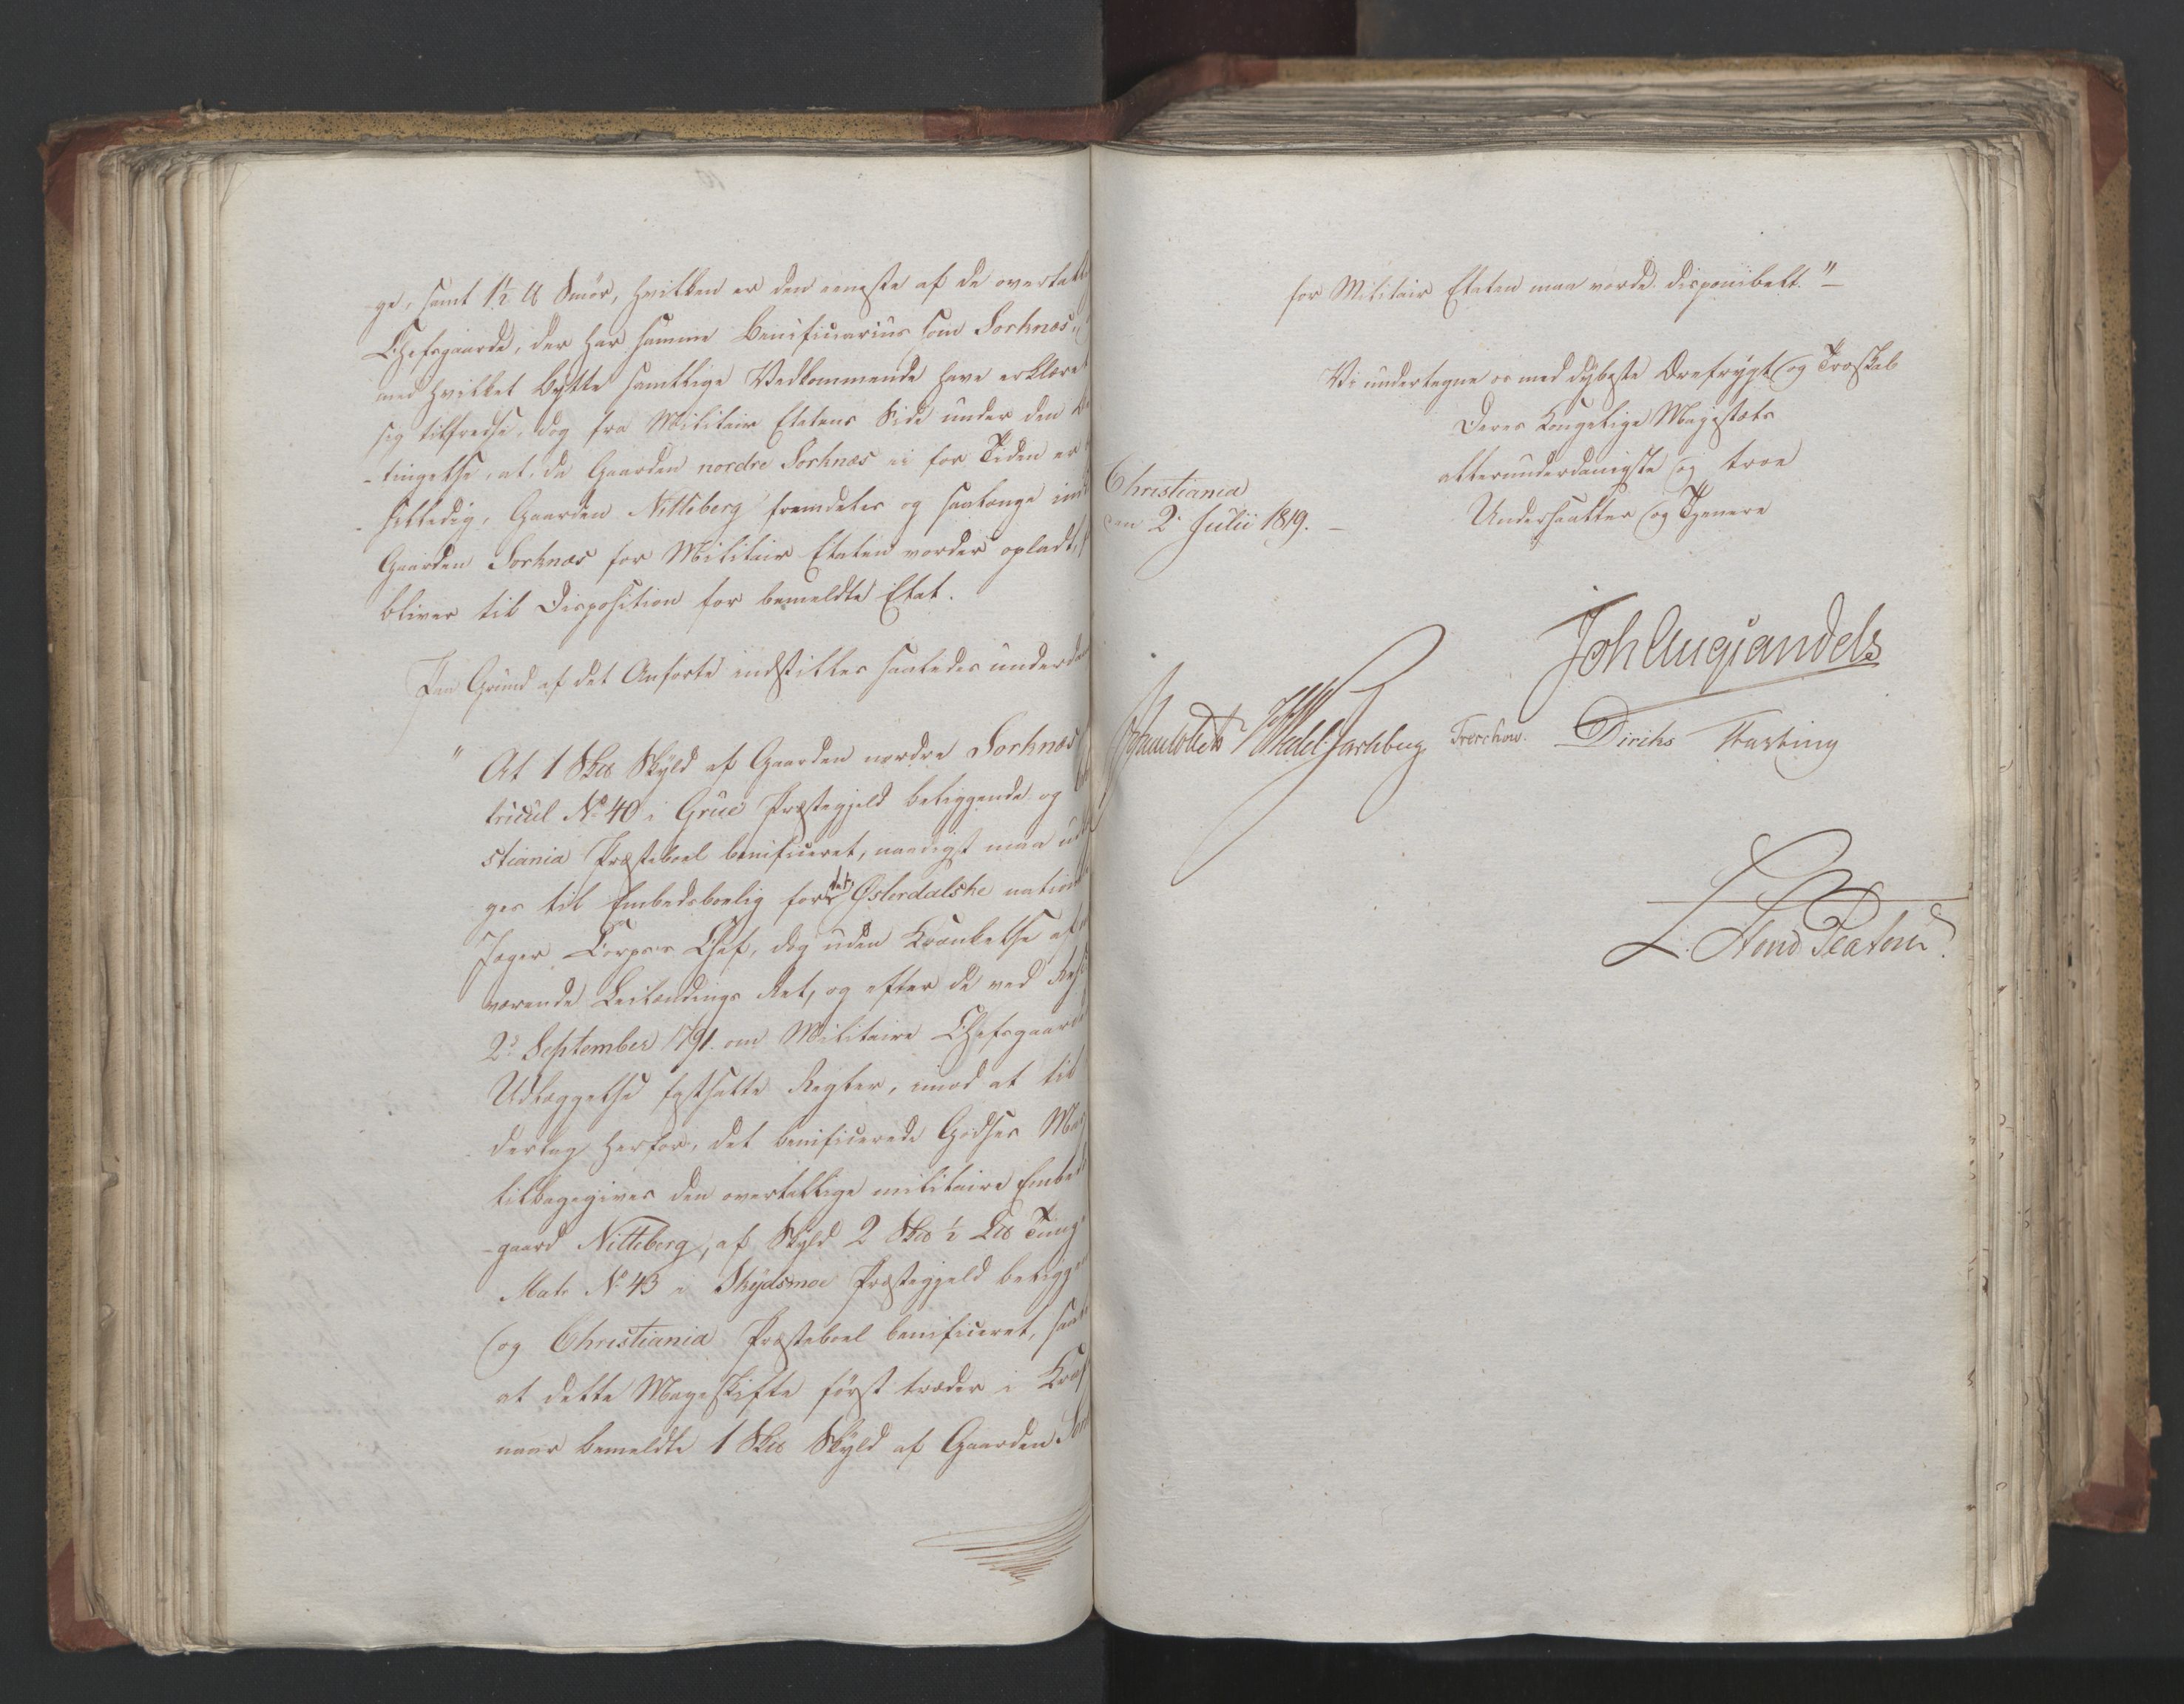 ge, samt 1½ ℔ Smør, hvilken er den eeneste af de overtal
Chefsgaarde, der har samme Benificiarius som Sorknæs,
med hvilket Bytte samtlige Vedkommende have erklæret
sig tilfredse, dog fra Militair Etatens Side under den
-tingelse, at, da Gaarden nordre Sorknæs ei for Tiden er
Gaarden Nitteberg fremdeles og saalænge
Gaarden Sorknæs for Militair Etaten vorder opladt,
bliver til Disposition for bemeldte Etat.
Paa Grund af det Anførte indstilles saaledes underda
" At 1 Sk℔ Skyld af Gaarden nordre Sorknæs
tricul No 40 i Grue Præstegjeld beliggende og
stiania Præsteboel benificeret, naadigst maa ud
ges til Embedsbolig for det Østerdalske nation
Jæger Corpses Chef, dog uden Krænkelse af
værende Leilændings Ret, og efter de ved
2. September 1791. om Militaire Chefsgaarde
Udlæggelse fastsatte Regler, imod at til
derlag herfor, det benificerede Godses
tilbagegives den overtallige militaire Embeds
-gaard Nitteberg, af Skyld 2 Sk℔ ½ L℔ Tunge
Matr No 43 i Skydsmoe Præstegjeld beligge
og Christiania Præsteboel benificeret, samt
at dette Mageskifte først træder i Kraft
naar bemeldte 1 Sk℔ Skyld af Gaarden Sor
for Militair Etaten maa vorde disponibelt." –
Vi undertegne os med dybeste Ærefrygt og Troskab
Deres Kongelige Majestæts
allerunderdanigste og troe
Undersaatter og Tjenere
Christiania
den 2. Julii 1819. –
Joh Aug Sandels
Sommerhielm Wedel Jarlsberg Treschow. Diriks Fasting
L. Stoud Platou